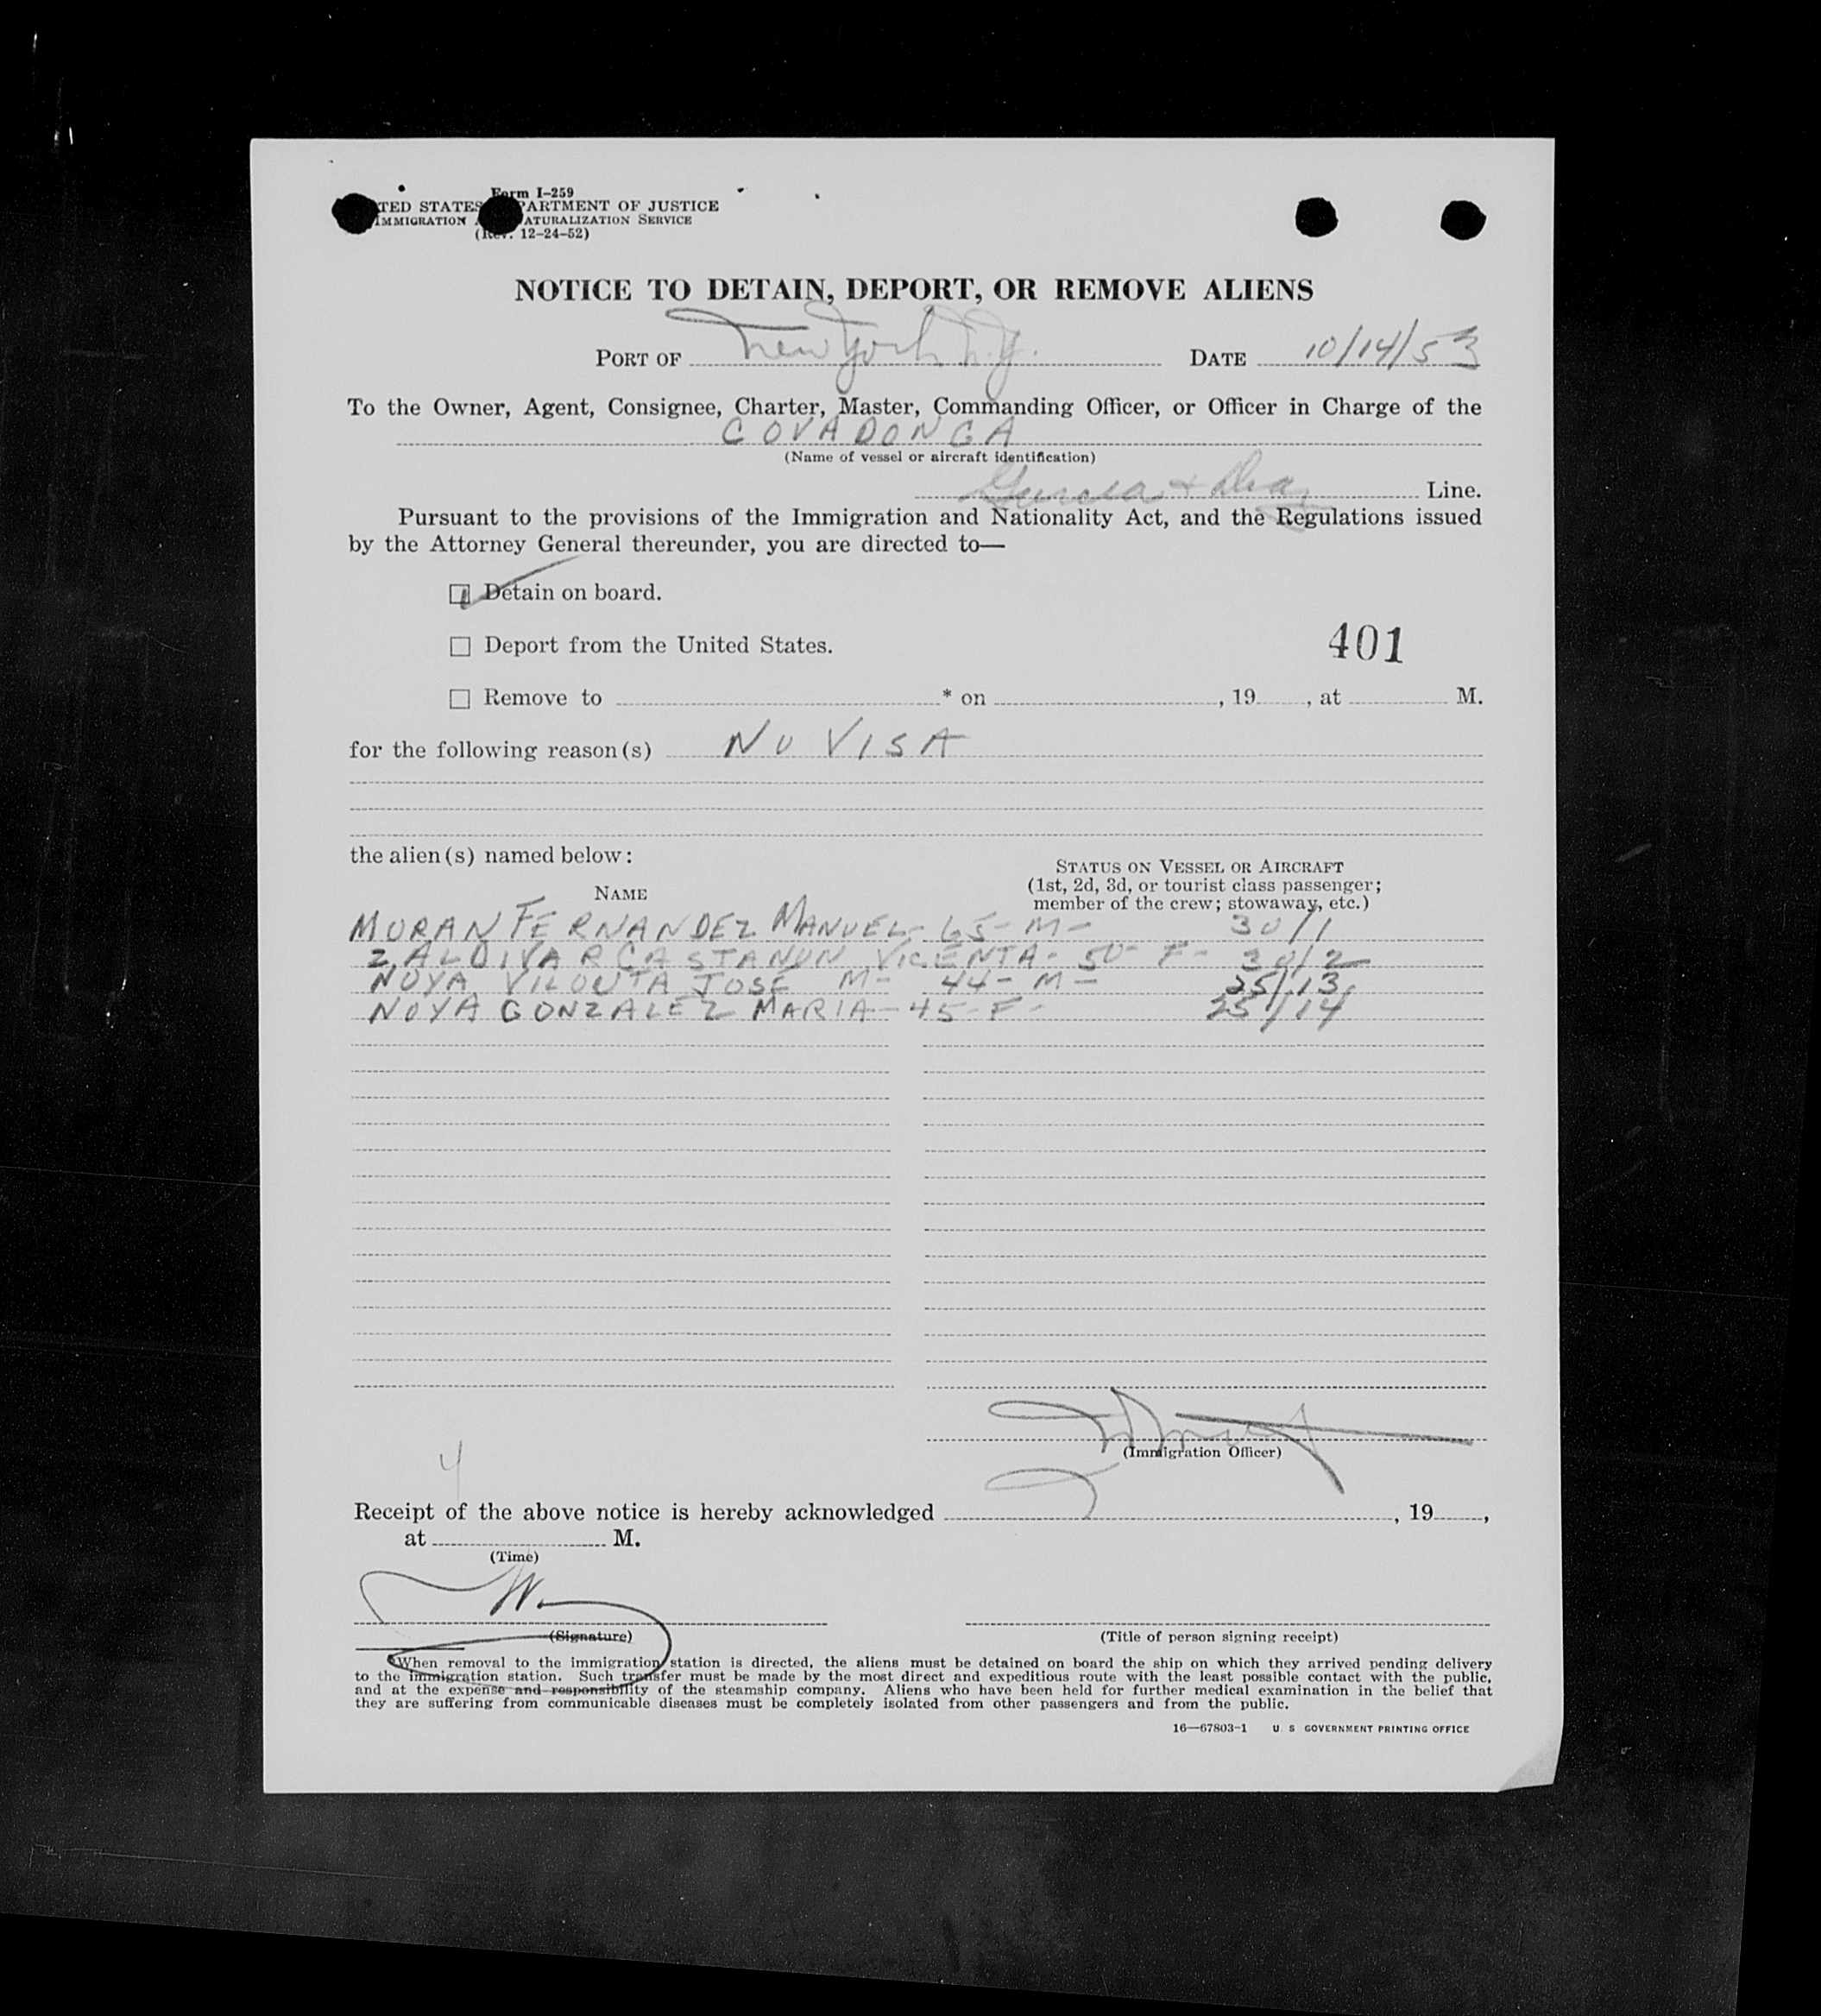 Form I-259
TED STATES PARTMENT OF JUSTICE
IMMIGRATION ATURALIZATION SERVICE
(Rev. 12-24-52)
NOTICE TO DETAIN, DEPORT, OR REMOVE ALIENS
PORT OF New York N.Y. DATE 10/14/53
To the Owner, Agent, Consignee, Charter, Master, Commanding Officer, or Officer in Charge of the
COVADONGA
(Name of vessel or aircraft identification)
Garcia + Diaz Line.
Pursuant to the provisions of the Immigration and Nationality Act, and the Regulations issued
by the Attorney General thereunder, you are directed to—
Detain on board.
Deport from the United States.
401
Remove to * on , 19 , at M.
for the following reason(s) NO VISA
the alien(s) named below:
STATUS ON VESSEL OR AIRCRAFT
NAME
(1st, 2d, 3d, or tourist class passenger;
member of the crew; stowaway, etc.)
MORAN FERNANDEZ MANUEL - 65 - M - 30/1
ZALDIVAR CASTANON VICENTA - 50 - F - 30/2
NOYA VILOUTA JOSE M - 44 - M - 25/13
NOYA GONZALEZ MARIA - 45 - F - 25/14
(Immigration Officer)
4
Receipt of the above notice is hereby acknowledged , 19 ,
at M.
(Time)
(Signature)
(Title of person signing receipt)
*When removal to the immigration station is directed, the aliens must be detained on board the ship on which they arrived pending delivery
to the immigration station. Such transfer must be made by the most direct and expeditious route with the least possible contact with the public,
and at the expense and responsibility of the steamship company. Aliens who have been held for further medical examination in the belief that
they are suffering from communicable diseases must be completely isolated from other passengers and from the public.
16—67803-1 U. S GOVERNMENT PRINTING OFFICE